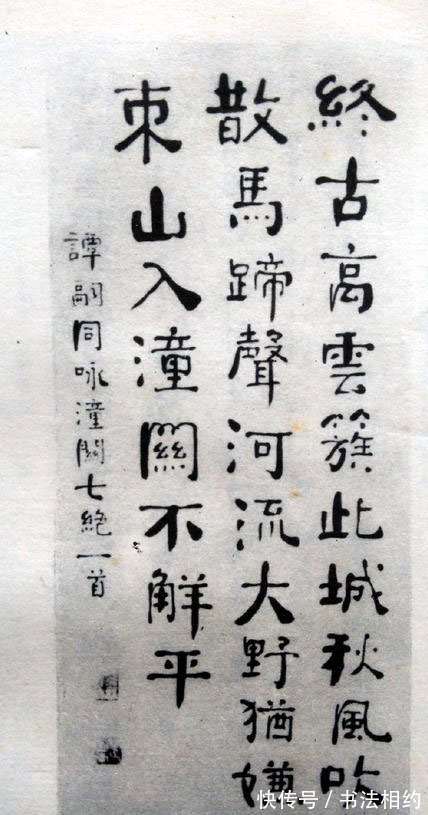 終古高雲簇此城秋風吹
散馬蹄聲河流大野猶嫌
束山入潼關不解平
譚嗣同咏潼關七絕一首
快传号 / 书法相约